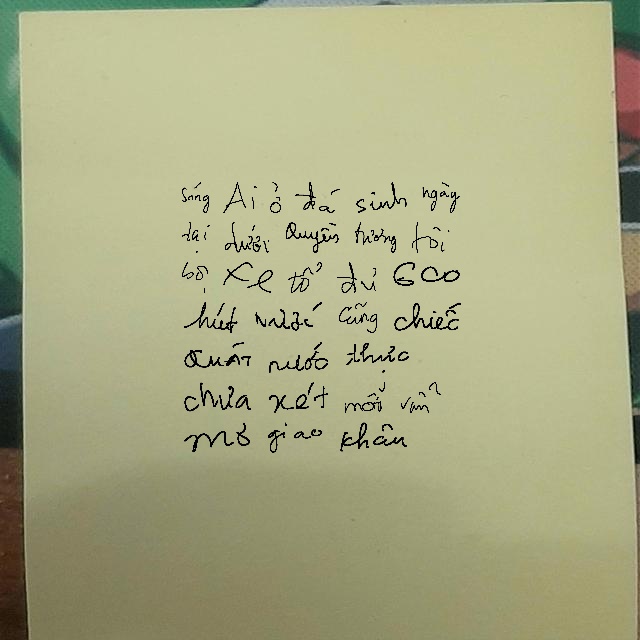 sáng Ai ở đá sinh ngày
tại dưới Quyền tương tôi
bộ xe tổ đủ 600
hút nước cũng chiếc
quát nước thực
chưa xét mỗi vẫn
mơ giao khăn